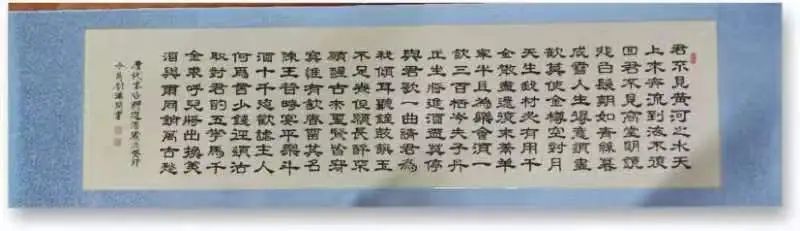 君不見黃河之水天
上來奔流到海不復
回君不見高堂明鏡
悲白髮朝如青絲暮
成雪人生得意須盡
歡莫使金樽空對月
天生我材必有用千
金散盡還復來烹羊
宰牛且為樂會須一
飲三百杯岑夫子丹
丘生將進酒君莫停
與君歌一曲請君為
我傾耳聽鐘鼓饌玉
不足貴但願長醉不
願醒古來聖賢皆寂
寞惟有飲者留其名
陳王昔時宴平樂斗
酒十千恣歡謔主人
何為言少錢徑須沽
取對君酌五花馬千
金裘呼兒將出換美
酒與爾同銷萬古愁
唐代李白將進酒歲次癸卯
冬月劉書